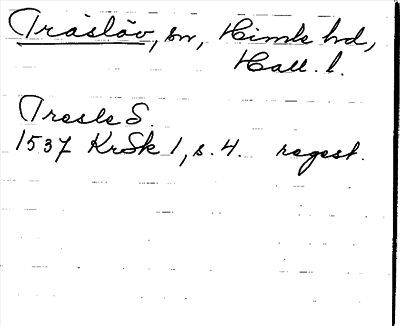 Träslöv, sn, Himle hd,
Hall. l.
Tresle S.
1537 KrSk 1, s. 4. regest.